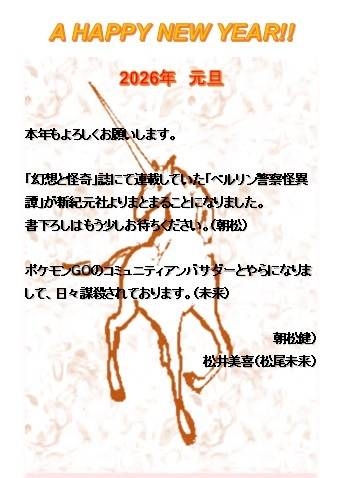 A HAPPY NEW YEAR!!
2026年 元旦
本年もよろしくお願いします。
「幻想と怪奇」誌にて連載していた「ベルリン警察怪異
譚」が新紀元社よりまとまることになりました。
書下ろしはもう少しお待ちください。（朝松）
ポケモンGOのコミュニティアンバサダーとやらになりま
して、日々謀殺されております。（未来）
朝松健）
松井美喜（松尾未来）